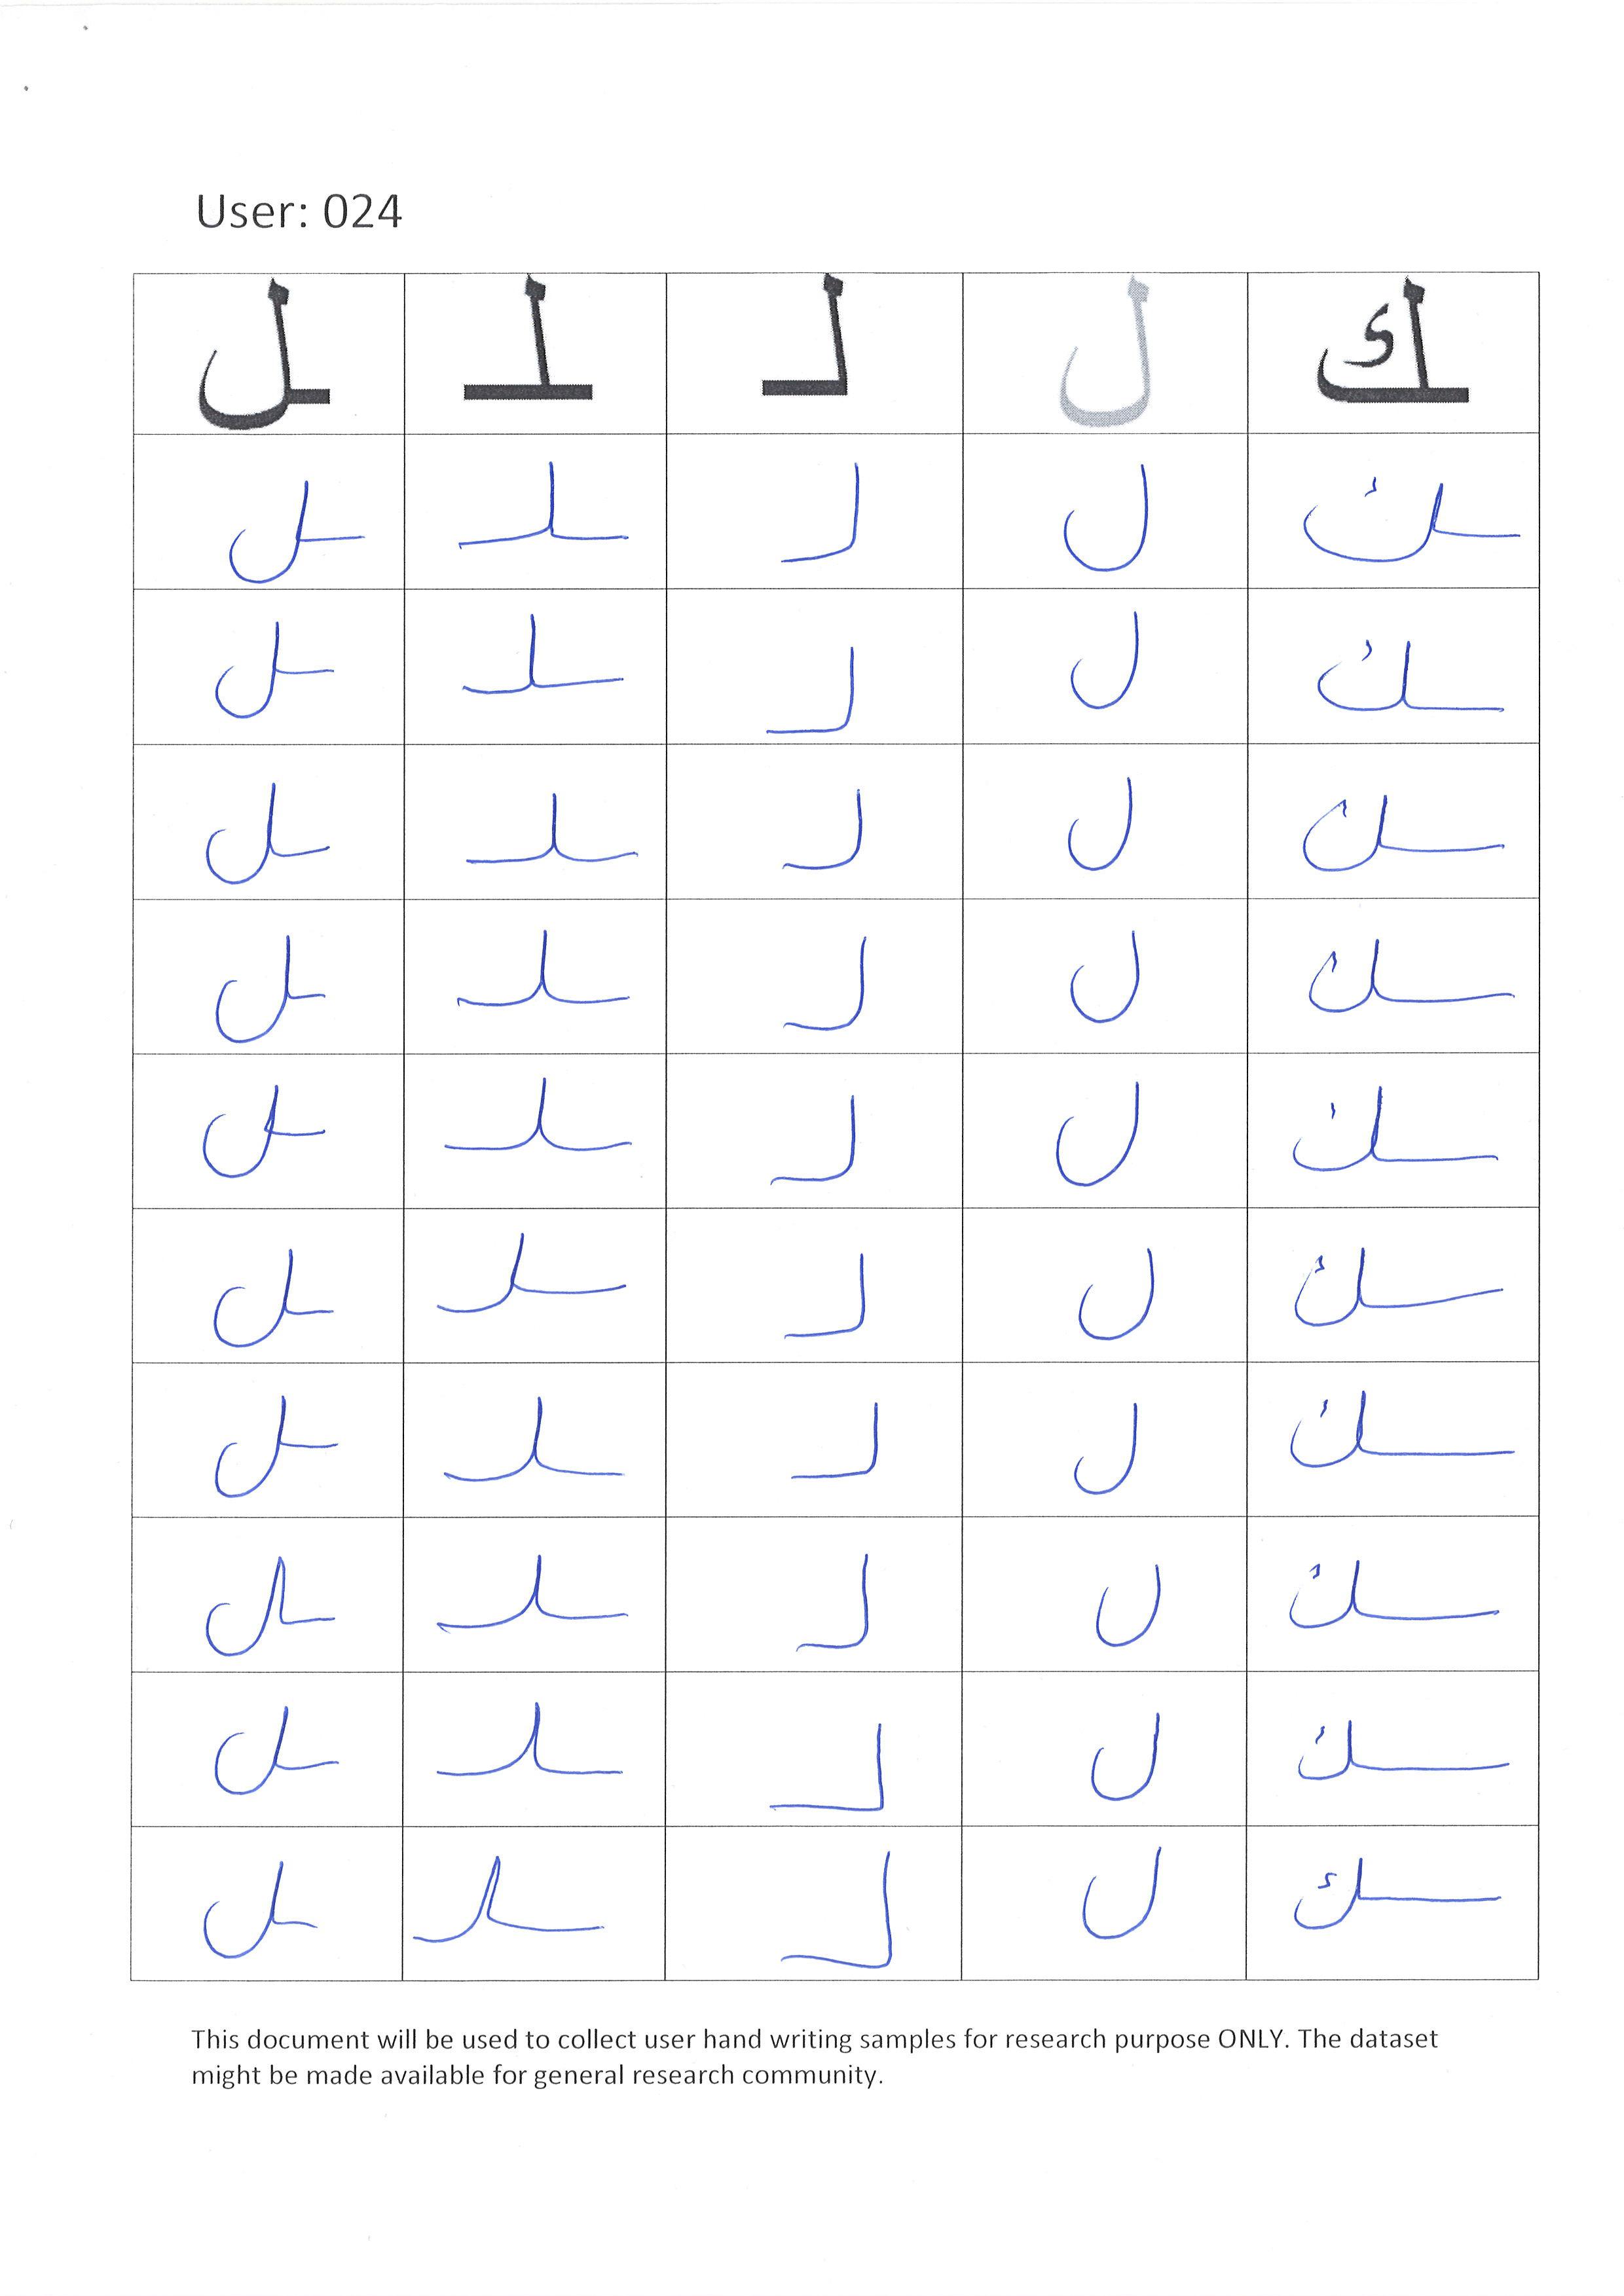 User: 024
ـك ل لـ ـلـ ـل
ـك ل لـ ـلـ ـل
ـك ل لـ ـلـ ـل
ـك ل لـ ـلـ ـل
ـك ل لـ ـلـ ـل
ـك ل لـ ـلـ ـل
ـك ل لـ ـلـ ـل
ـك ل لـ ـلـ ـل
ـك ل لـ ـلـ ـل
ـك ل لـ ـلـ ـل
ـك ل لـ ـلـ ـل
This document will be used to collect user hand writing samples for research purpose ONLY. The dataset
might be made available for general research community.